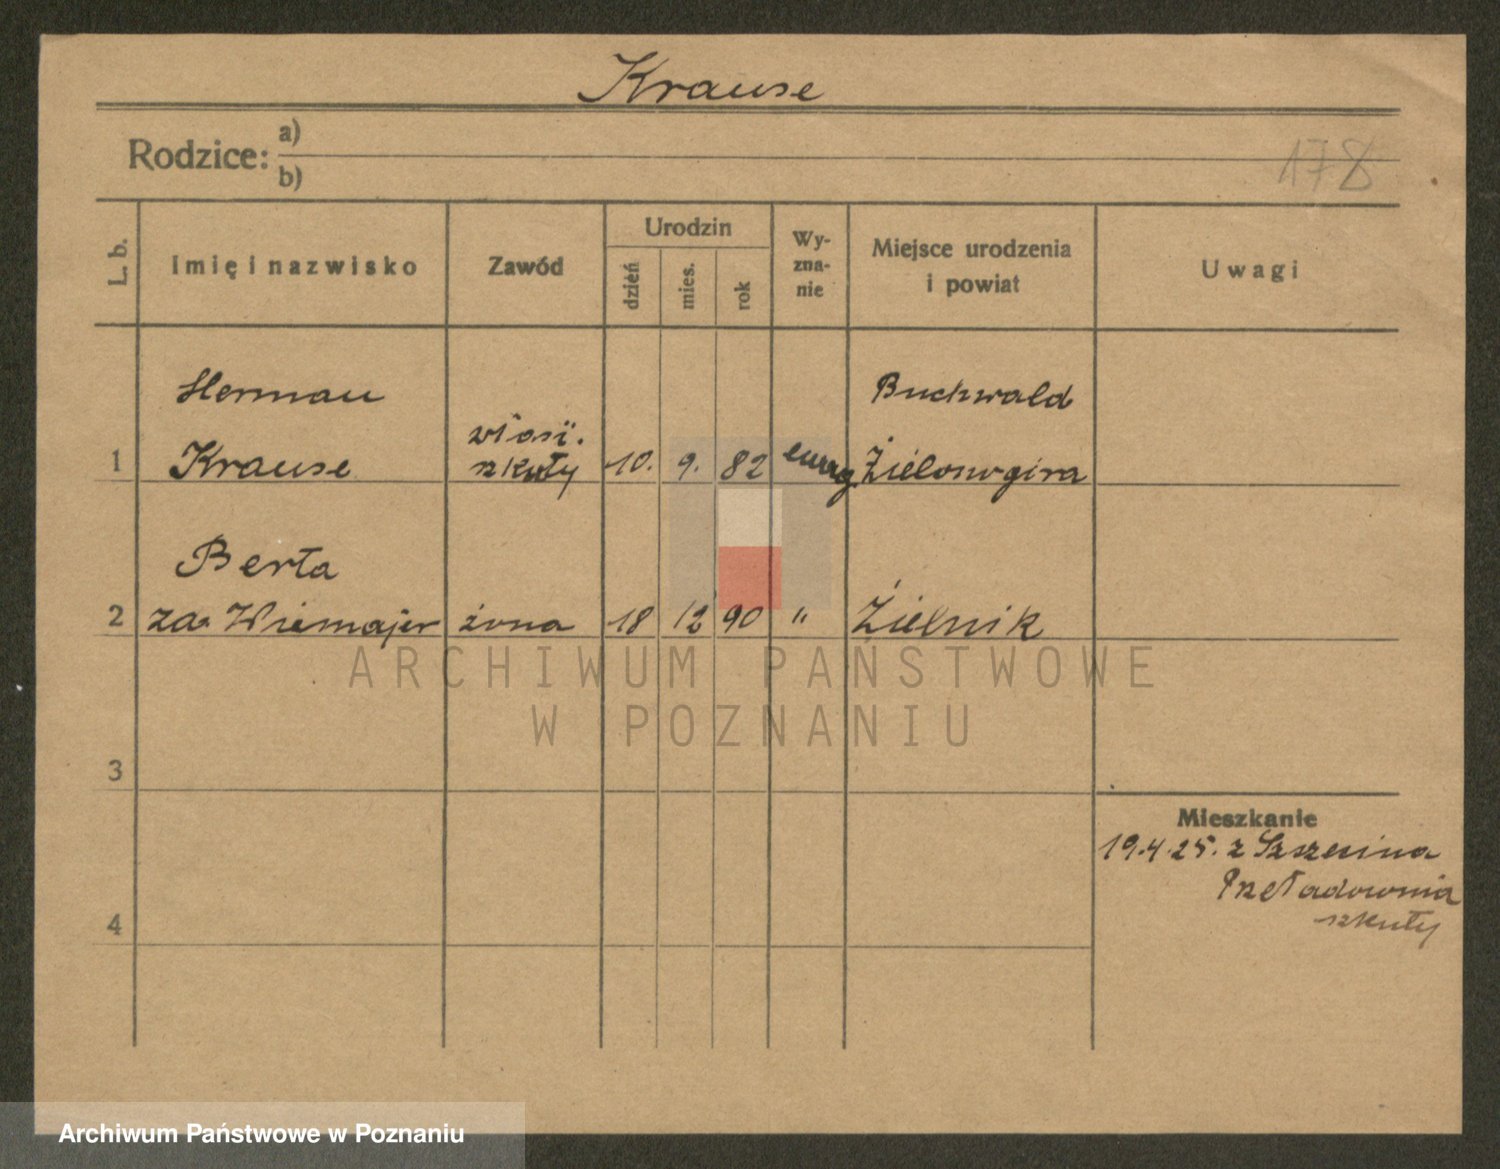 Krause
Rodzice: a)
b)
178
L. b.
Imię i nazwisko
Zawód
Urodzin
dzień
mies.
rok
Wy-
zna-
nie
Miejsce urodzenia
i powiat
Uwagi
Herman
Buchwald
1 Krause szkuły 10. 9. 82 ewag. Zielonogóra
Berta
2 za Wiemajer żona 18 12 90 " Zielnik
ARCHIWUM PAŃSTWOWE
W POZNANIU
3
Mieszkanie
19.4.25. z Szczecina
Przeładownia
szkuły
4
Archiwum Państwowe w Poznaniu